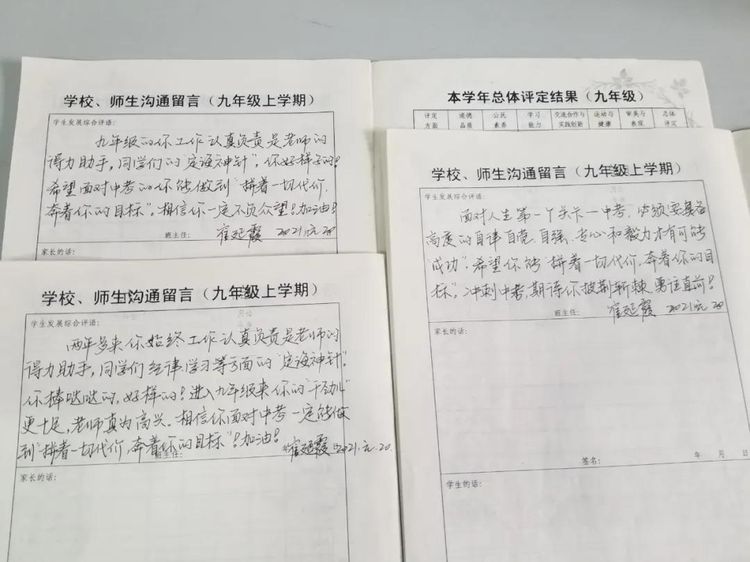 学校、师生沟通留言（九年级上学期）
学生发展综合评语：
九年级的你工作认真负责是老师的
得力助手，同学们的"定海神针"，你好样的！
希望面对中考的你能做到"拼着一切代价，
奔着你的目标"，相信你一定不负众望！加油！
班主任： 崔延霞 2021.元.20
家长的话：
本学年总体评定结果（九年级）
评定 道德 公民 学习 交流合作与 运动与 审美与 总体
方面 品质 素养 能力 实践创新 健康 表现 评定
学校、师生沟通留言（九年级上学期）
学生发展综合评语：
两年多来你始终工作认真负责是老师的
得力助手，同学们纪律学习等方面的"定海神针"
你棒哒哒的，好样的！进入九年级来你的"干劲儿"
更十足，老师真为高兴。相信你面对中考一定能做
到"拼着一切代价，奔着你的目标"！加油！
班主任： 崔延霞 2021.元.20
家长的话：
学校、师生沟通留言（九年级上学期）
学生发展综合评语：
面对人生第一个关卡—中考，必须要具备
高度的自律自觉、自强、专心和毅力才有可能
"成功"。希望你能"拼着一切代价，奔着你的目
标"。冲刺中考，期待你披荆斩棘，勇往直前！
班主任： 崔延霞 2021.元.20
家长的话：
签名： 年 月 日
学生的话：